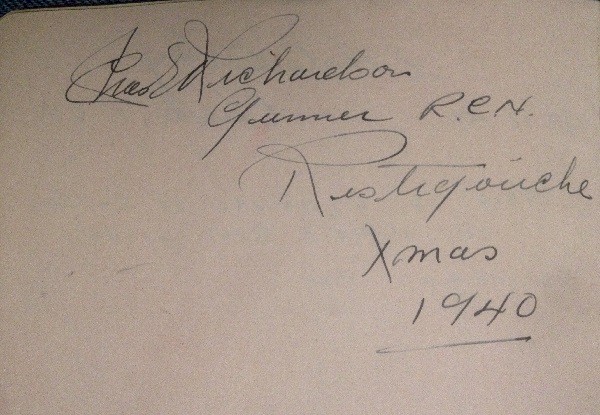 Chas E Richardson
Gunner R.C.N.
Restigouche
Xmas
1940